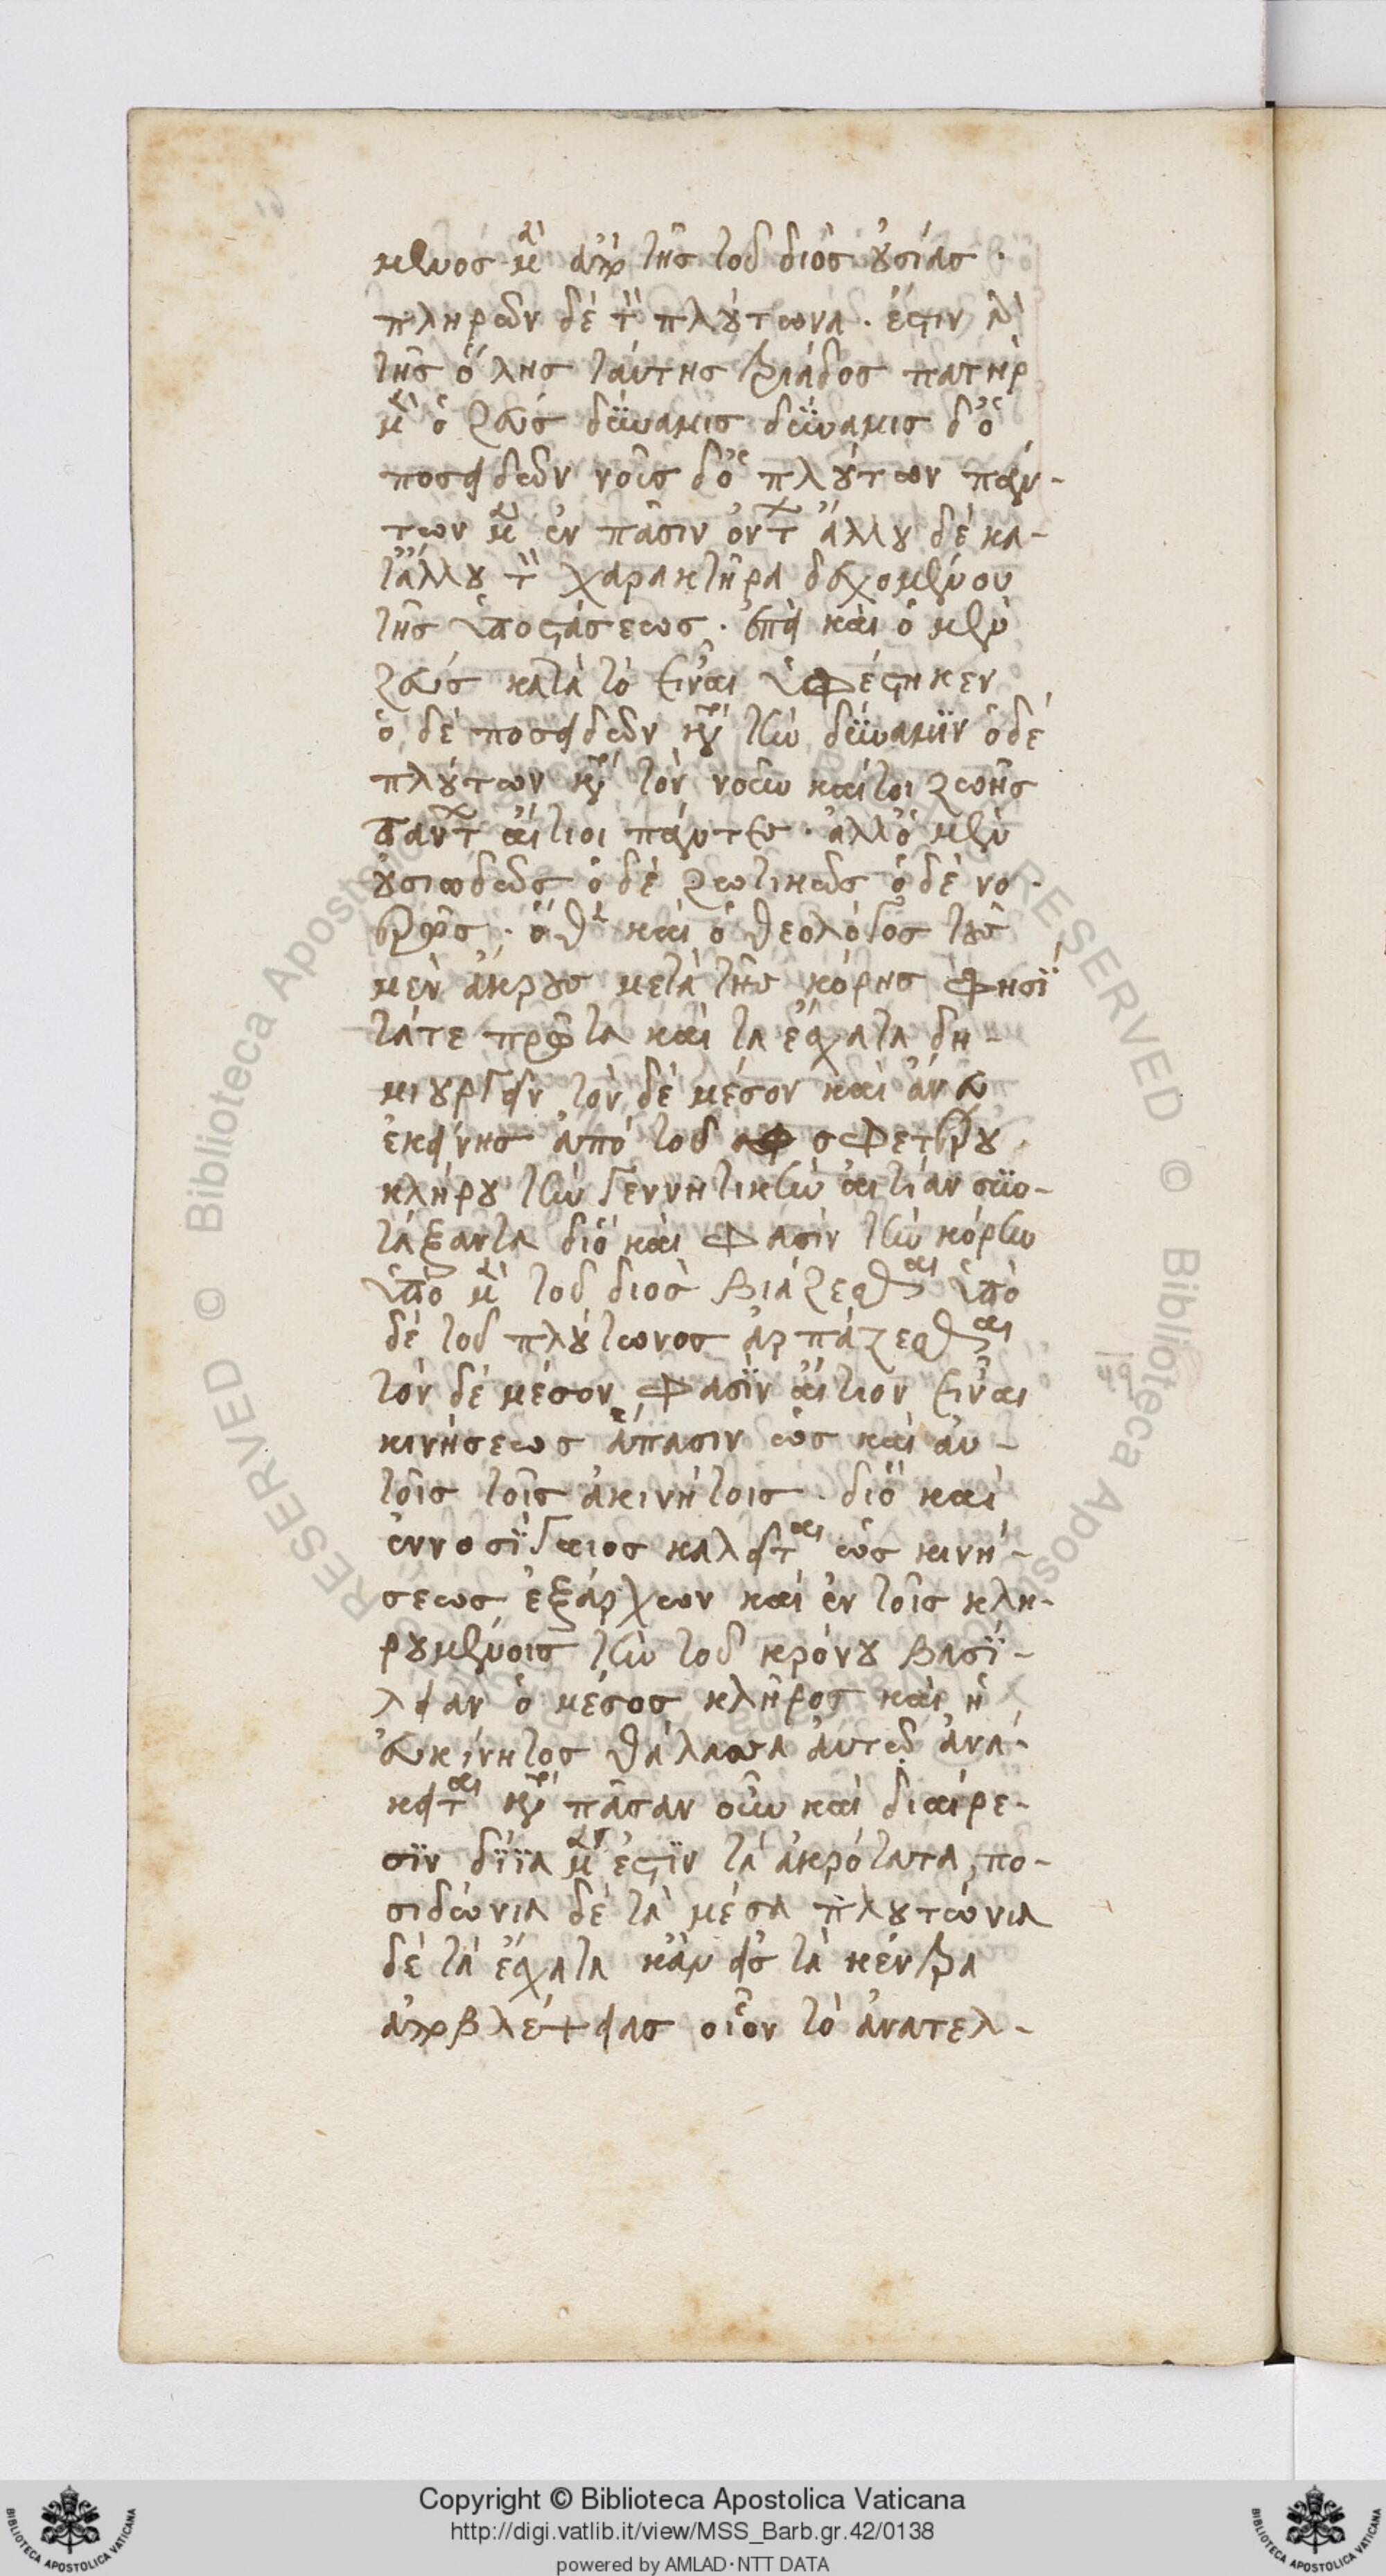 μενος μὲν ἀπὸ τῆς τοῦ διὸς οὐσίας ·
πληρῶν δὲ τὸν πλούτωνα · ἔστιν
τῆς ὅλης ταύτης τριάδος πατὴρ
μὲν ὁ ζεύς δύναμις δύναμις δὲ ὁ
ποσειδῶν νοῦς δὲ ὁ πλούτων πάν-
των μὲν ἐν πᾶσιν ὄντων ἄλλου δὲ κα-
τ' ἄλλου τὸν χαρακτῆρα δεχομένου
τῆς ὑποστάσεως · ἐπεὶ καὶ ὁ μὲν
ζεύς κατὰ τὸ εἶναι ὑφέστηκεν
ὁ δὲ ποσειδῶν κατὰ τὴν δύναμιν ὁ δὲ
πλούτων κατὰ τὸν νοῦν καίτοι ζωῆς
πάντων αἴτιοι πάντες · ἀλλ' ὁ μὲν
οὐσιωδῶς ὁ δὲ ζωτικῶς ὁ δὲ νο-
ερῶς · ὅθεν καὶ ὁ θεολόγος τοὺς
μὲν ἄκρους μετὰ τῆς κόρης φησὶ
τάτε πρῶτα καὶ τα ἔσχατα δη-
μιουργεῖν τὸν δὲ μέσον καὶ ἄνευ
ἐκείνης ἀπὸ τοῦ σφετέρου
κλήρου τὴν γεννητικὴν αἰτίαν συν-
τάξαντα διὸ καὶ φασὶν τὴν κόρην
ὑπὸ μὲν τοῦ διὸς βιάζεσθαι ὑπὸ
δὲ τοῦ πλούτωνος ἁρπάζεσθαι
τὸν δὲ μέσον φασὶν αἴτιον εἶναι
κινήσεως ἅπασιν ὡς καὶ αὐ-
τοῖς τοῖς ἀκινήτοις · διὸ καὶ
ἐννοσίγαιος καλεῖται ὡς κινή-
σεως ἐξάρχων καὶ ἐν τοῖς κλη-
ρουμένοις τὴν τοῦ κρόνου βασι-
λείαν ὁ μέσος κλῆρος καὶ ἡ
εὐκίνητος θάλασσα αὐτῷ ἀνά-
κειται κατὰ πᾶσαν οὖν καὶ διαίρε-
σιν δίϊα μὲν ἐστὶν τὰ ἀκρότατα, πο-
σιδώνια δὲ τὰ μέσα πλουτώνια
δὲ τὰ ἔσχατα κἂν εἰς τὰ κέντρα
ἀποβλέψειας οἷον τὸ ἀνατελ-
Copyright © Biblioteca Apostolica Vaticana
http://digi.vatlib.it/view/MSS_Barb.gr.42/0138
powered by AMLAD·NTT DATA